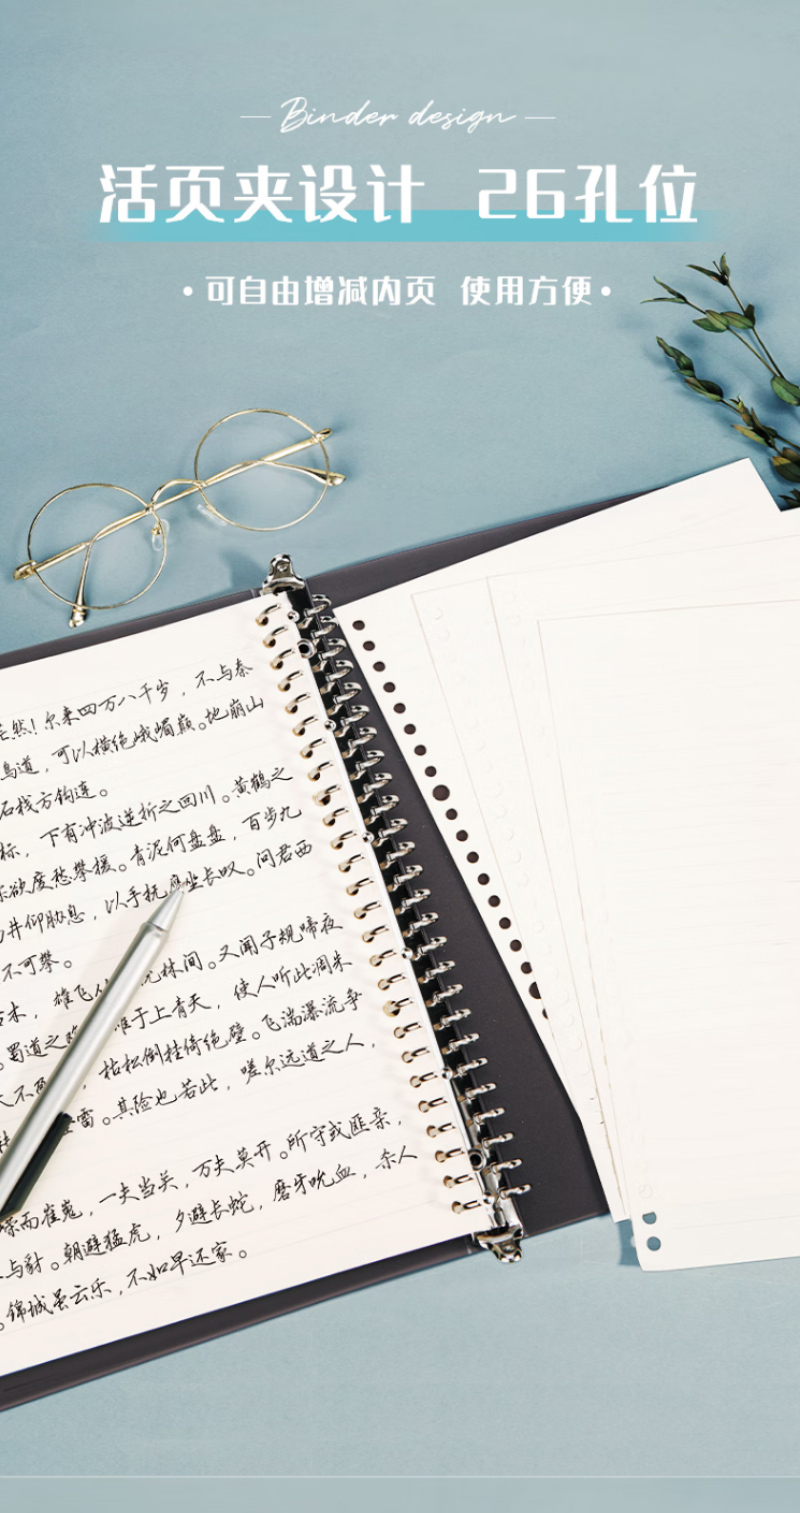 Binder design
活页夹设计 26孔位
•可自由增减内页 使用方便•
茫然！尔来四万八千岁，不与秦
鸟道，可以横绝峨嵋巅。地崩山
石栈方钩连。
标，下有冲波逆折之回川。黄鹤之
欲度愁攀援。青泥何盘盘，百步九
井仰胁息，以手抚膺坐长叹。问君西
不可攀。
古木，雄飞 林间。又闻子规啼夜
。蜀道之难 难于上青天，使人听此凋朱
天不 ，枯松倒挂倚绝壁。飞湍瀑流争
雷。其险也若此，嗟尔远道之人，
嵘而崔嵬，一夫当关，万夫莫开。所守或匪亲，
与豺。朝避猛虎，夕避长蛇，磨牙吮血，杀人
。锦城虽云乐，不如早还家。